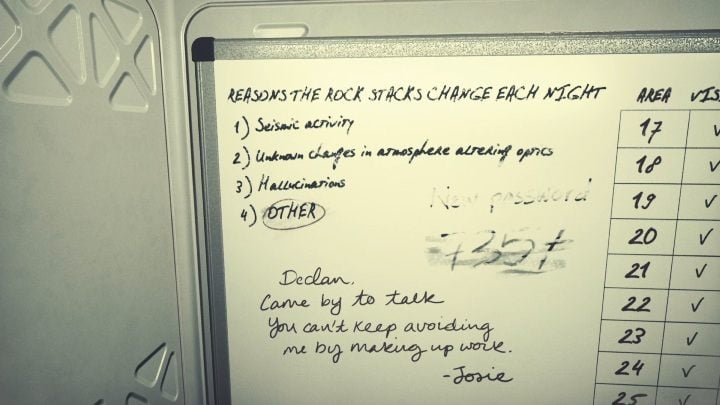 REASONS THE ROCK STACKS CHANGE EACH NIGHT
1) Seismic activity
2) Unknown changes in atmosphere altering optics
3) Hallucinations
4) OTHER
New password
Declan,
Came by to talk
You can't keep avoiding
me by making up work.
-Josie
AREA
17 ✓
18 ✓
19 ✓
20 ✓
21 ✓
22 ✓
23 ✓
24 ✓
25